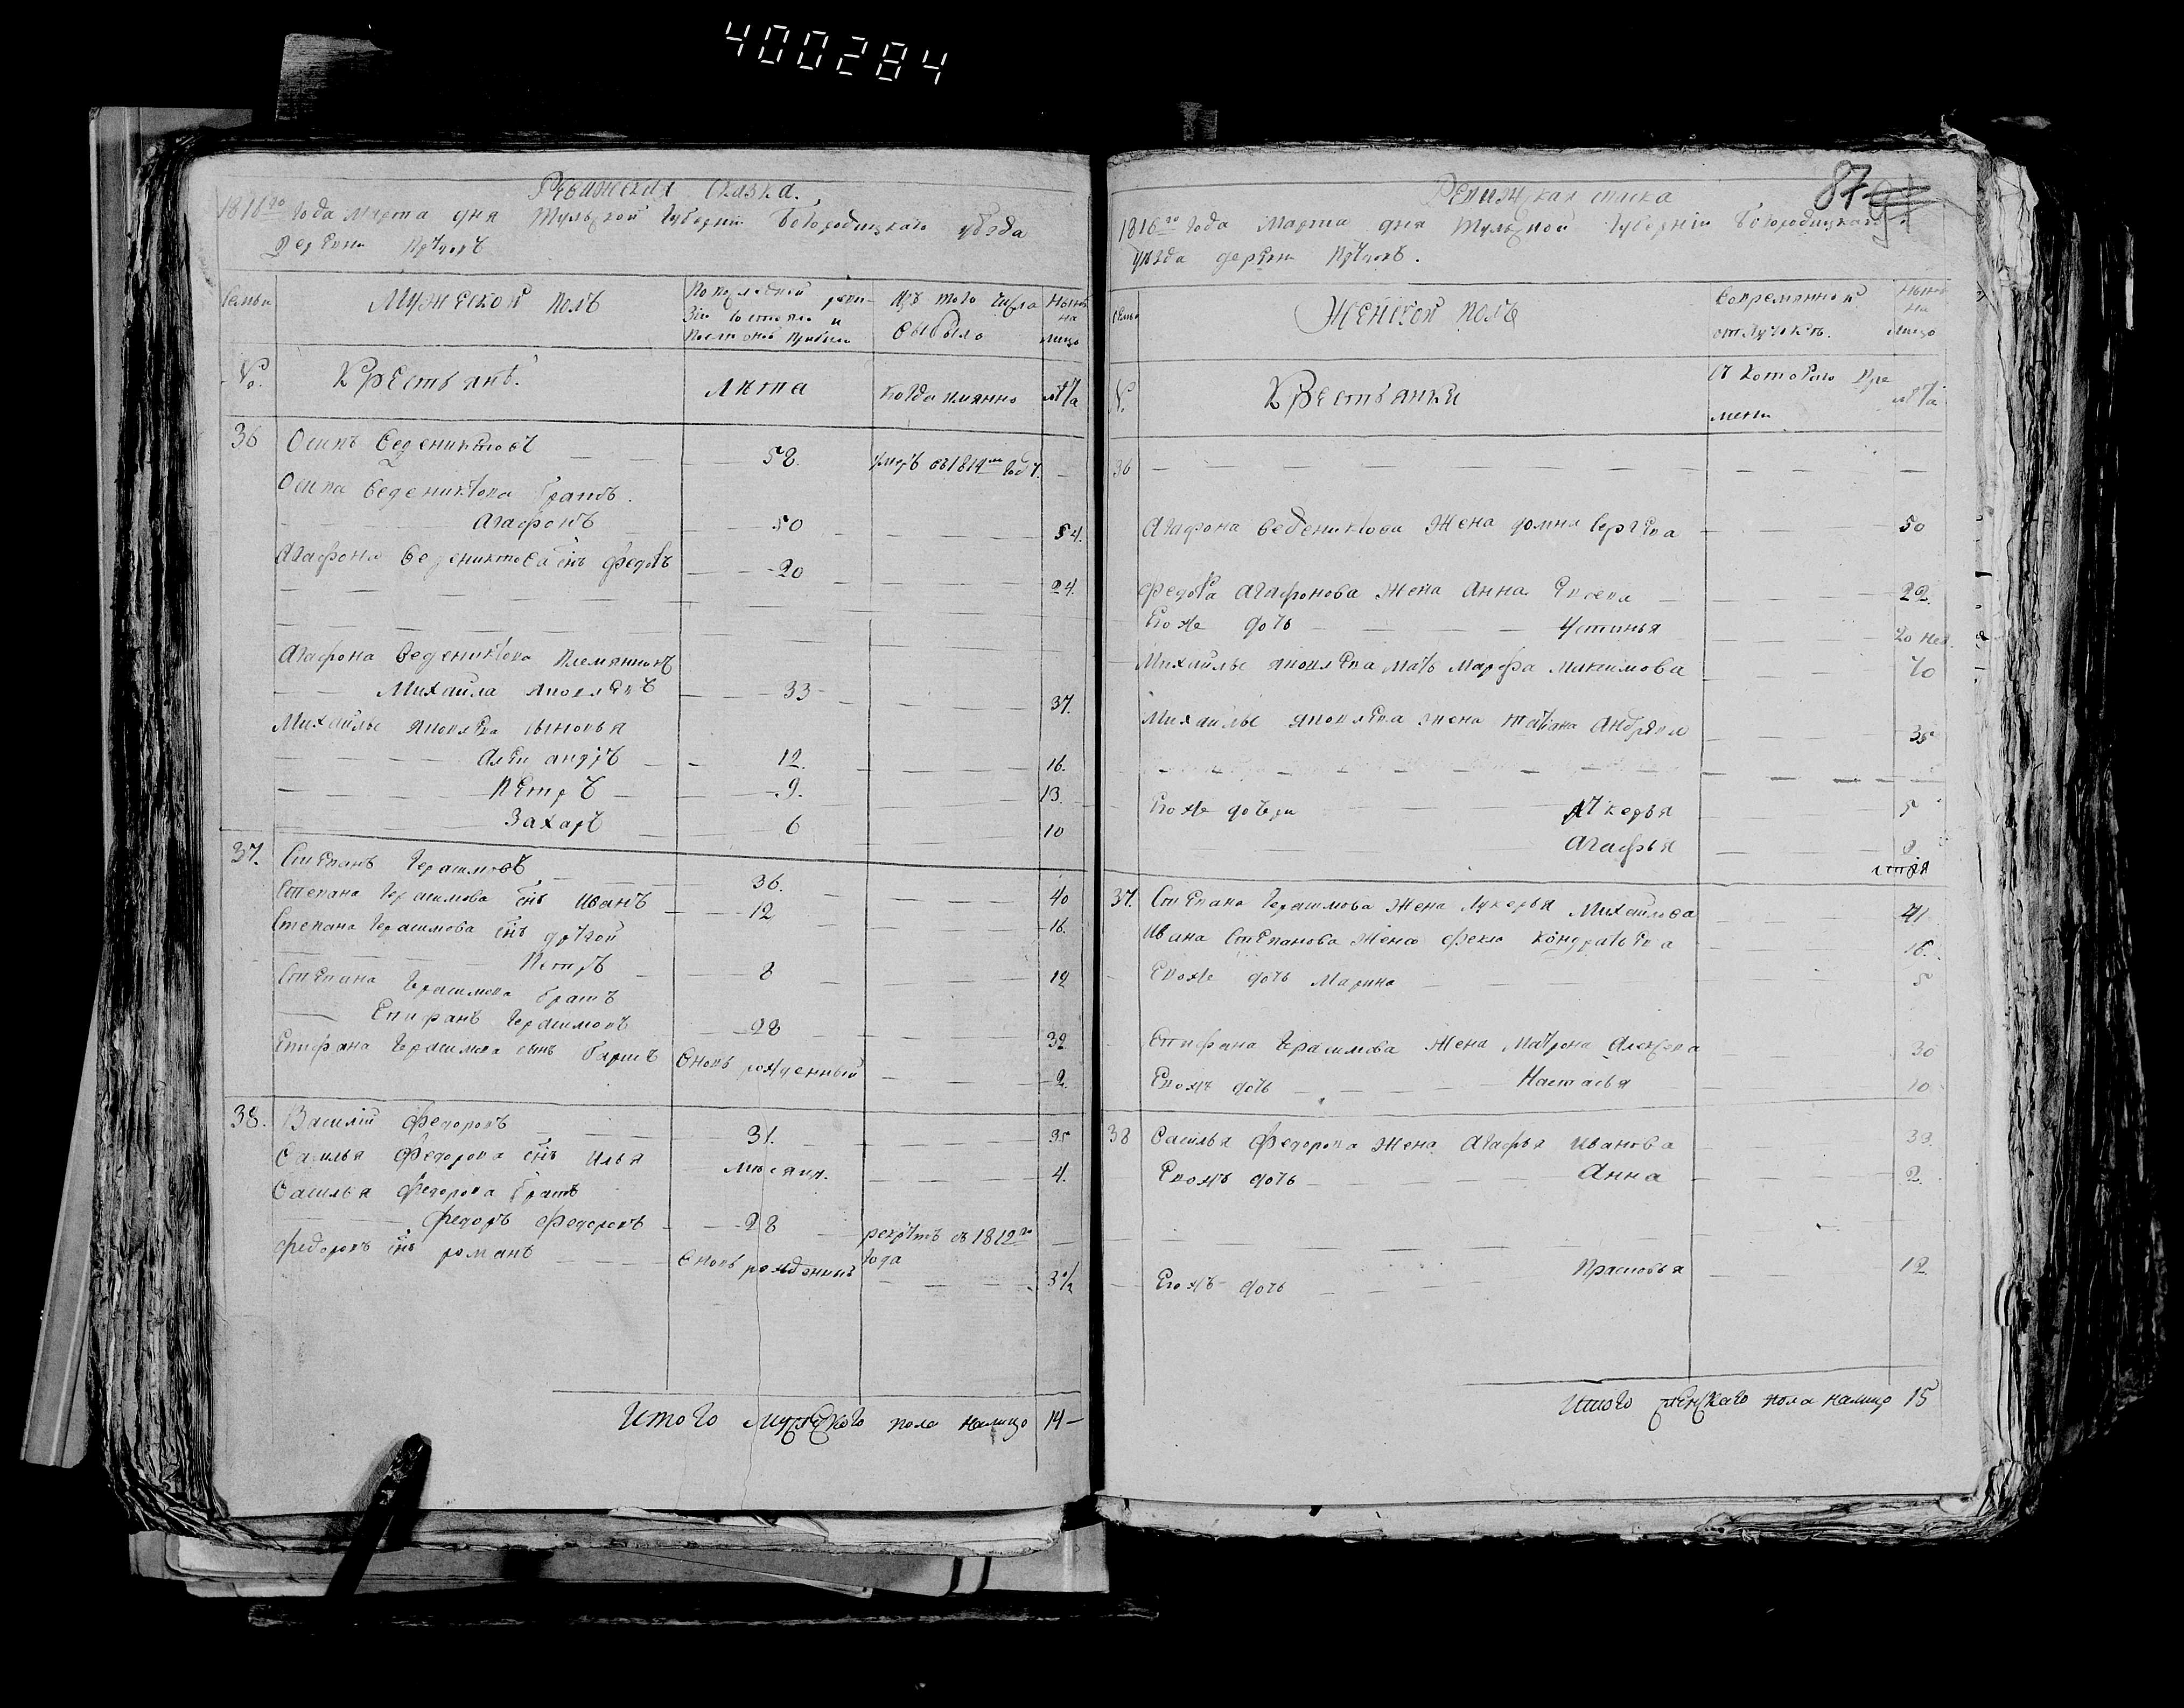 400284
Ревижская сказка.
1816го Года Марта дня Тульской Губернии Богородицкаго уезда
деревни
Семьи
Мужеской полъ
По последней реви-
зіи состояло и
после оной прибыло
Изъ того числа
выбыло
Ныне
на
лицо
№.
Крестьянъ.
Лета
когда имянно
лета
36 Осипъ Ведениктовъ — — 58. умеръ въ 1814м годе. —
Осипа Ведениктова братъ
Агафонъ — 50 — — — 54.
Агафона Ведениктова снъ Федотъ — 20 — — — 24.
Агафона Ведениктова племянникъ
Михайла Яковлевъ — 33 — — — 37.
Михайлы Яковлева сыновья
Александръ — 12. — — — 16.
Петръ — 9. — — — 13.
Захаръ — 6 — — — 10
37. Степанъ Герасимовъ — 36. — — — 40
Степана Герасимова снъ Иванъ — 12 — — — 16.
Степана Герасимова снъ другой
Петръ — 8 — — — 12
Степана Герасимова братъ
Епифанъ Герасимовъ — 28 — — — 32
Епифана Герасимова сынъ
вновь рожденный — — — 2.
38. Василій Федоровъ — 31. — — — 35
Василья Федорова снъ Илья — месяцъ. — — — 4.
Василья Федорова братъ
Федоръ Федоровъ — 28 — рекрутъ въ 1812го
года
Федоровъ снъ романъ — — вновь рожденный — — 3 1/2
Итого мужескаго пола налицо 14 —
87
Ревижская скаска
1816го Года Марта дня Тульской Губерніи Богородицкаго
уезда деревни
Семьи
Женской полъ
Во временной
отлучке.
Ныне
на
лицо
№.
Крестьянки
съ котораго вре
мени
лета
36 — — — — —
Агафона Ведениктова жена домна Сергеева — — — 50
Федота Агафонова жена Анна — — — 22.
Его же дочь — — — Устинья — — — 20 нед.
Михайлы Яковлева мать Марфа Максимова — — — 70
Михайлы Яковлева жена Татиана Андреева — — — 35
Его же дочери — — Лукерья — — 5
Агафья — —
37. Степана Герасимова жена Лукерья Михайлова — — 41
Ивана Степанова жена Фекла Кондратьева — — 16.
Ево же дочь Марина — — — 5
Епифана Герасимова жена Матрона Алексеева — — 30
Ево жъ дочь — — — Настасья — — 10
38 Василья Федорова жена Агафья Иванова — — — 33.
Ево жъ дочь — — — Анна — — — 2.
Его жъ дочь — — — Прасковья — — 12.
Итого женскаго пола налицо 15